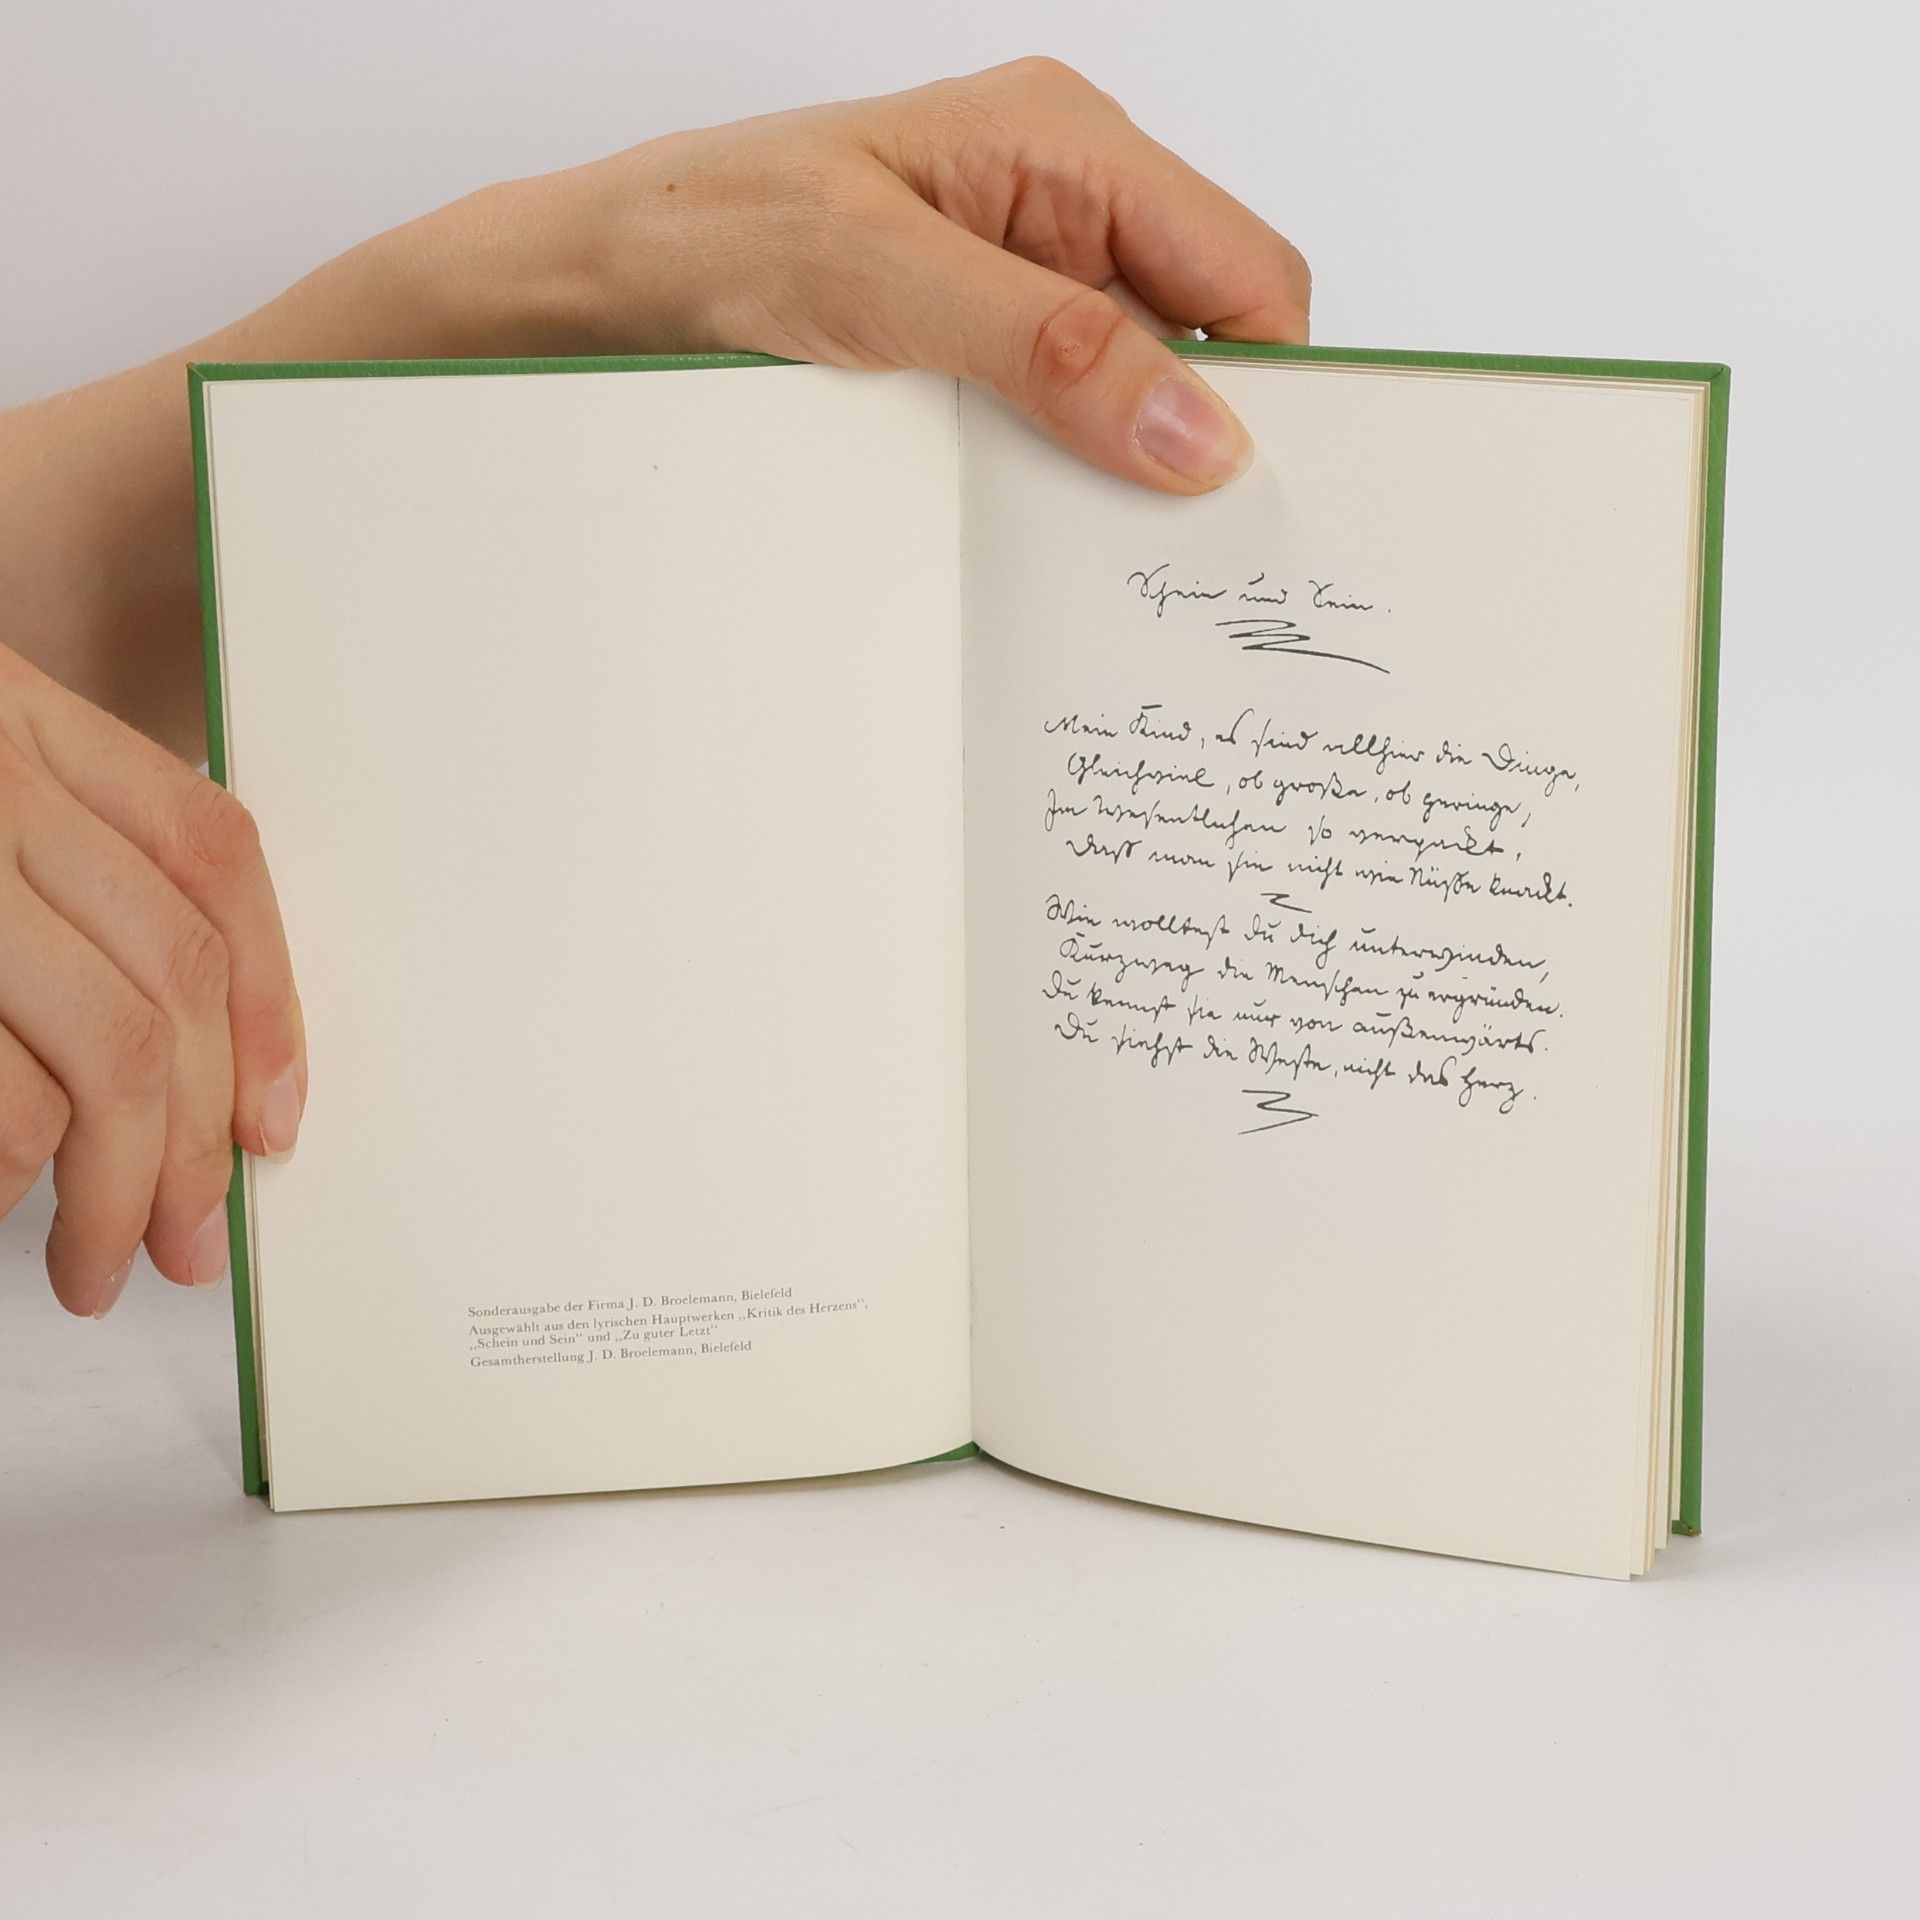 Sonderausgabe der Firma J. D. Broelemann, Bielefeld
Ausgewählt aus den lyrischen Hauptwerken „Kritik des Herzens“,
„Schein und Sein“ und „Zu guter Letzt“
Gesamtherstellung J. D. Broelemann, Bielefeld
Schein und Sein.
Mein Kind, es sind allhier die Dinge,
Gleichviel, ob große, ob geringe,
Im Wesentlichen so verpackt,
Daß man sie nicht wie Nüße knackt.
Wie wolltest du dich unterwinden,
Kurzweg die Menschen zu ergründen.
Du kennst sie nur von außenwärts.
Du siehst die Weste, nicht das Herz.